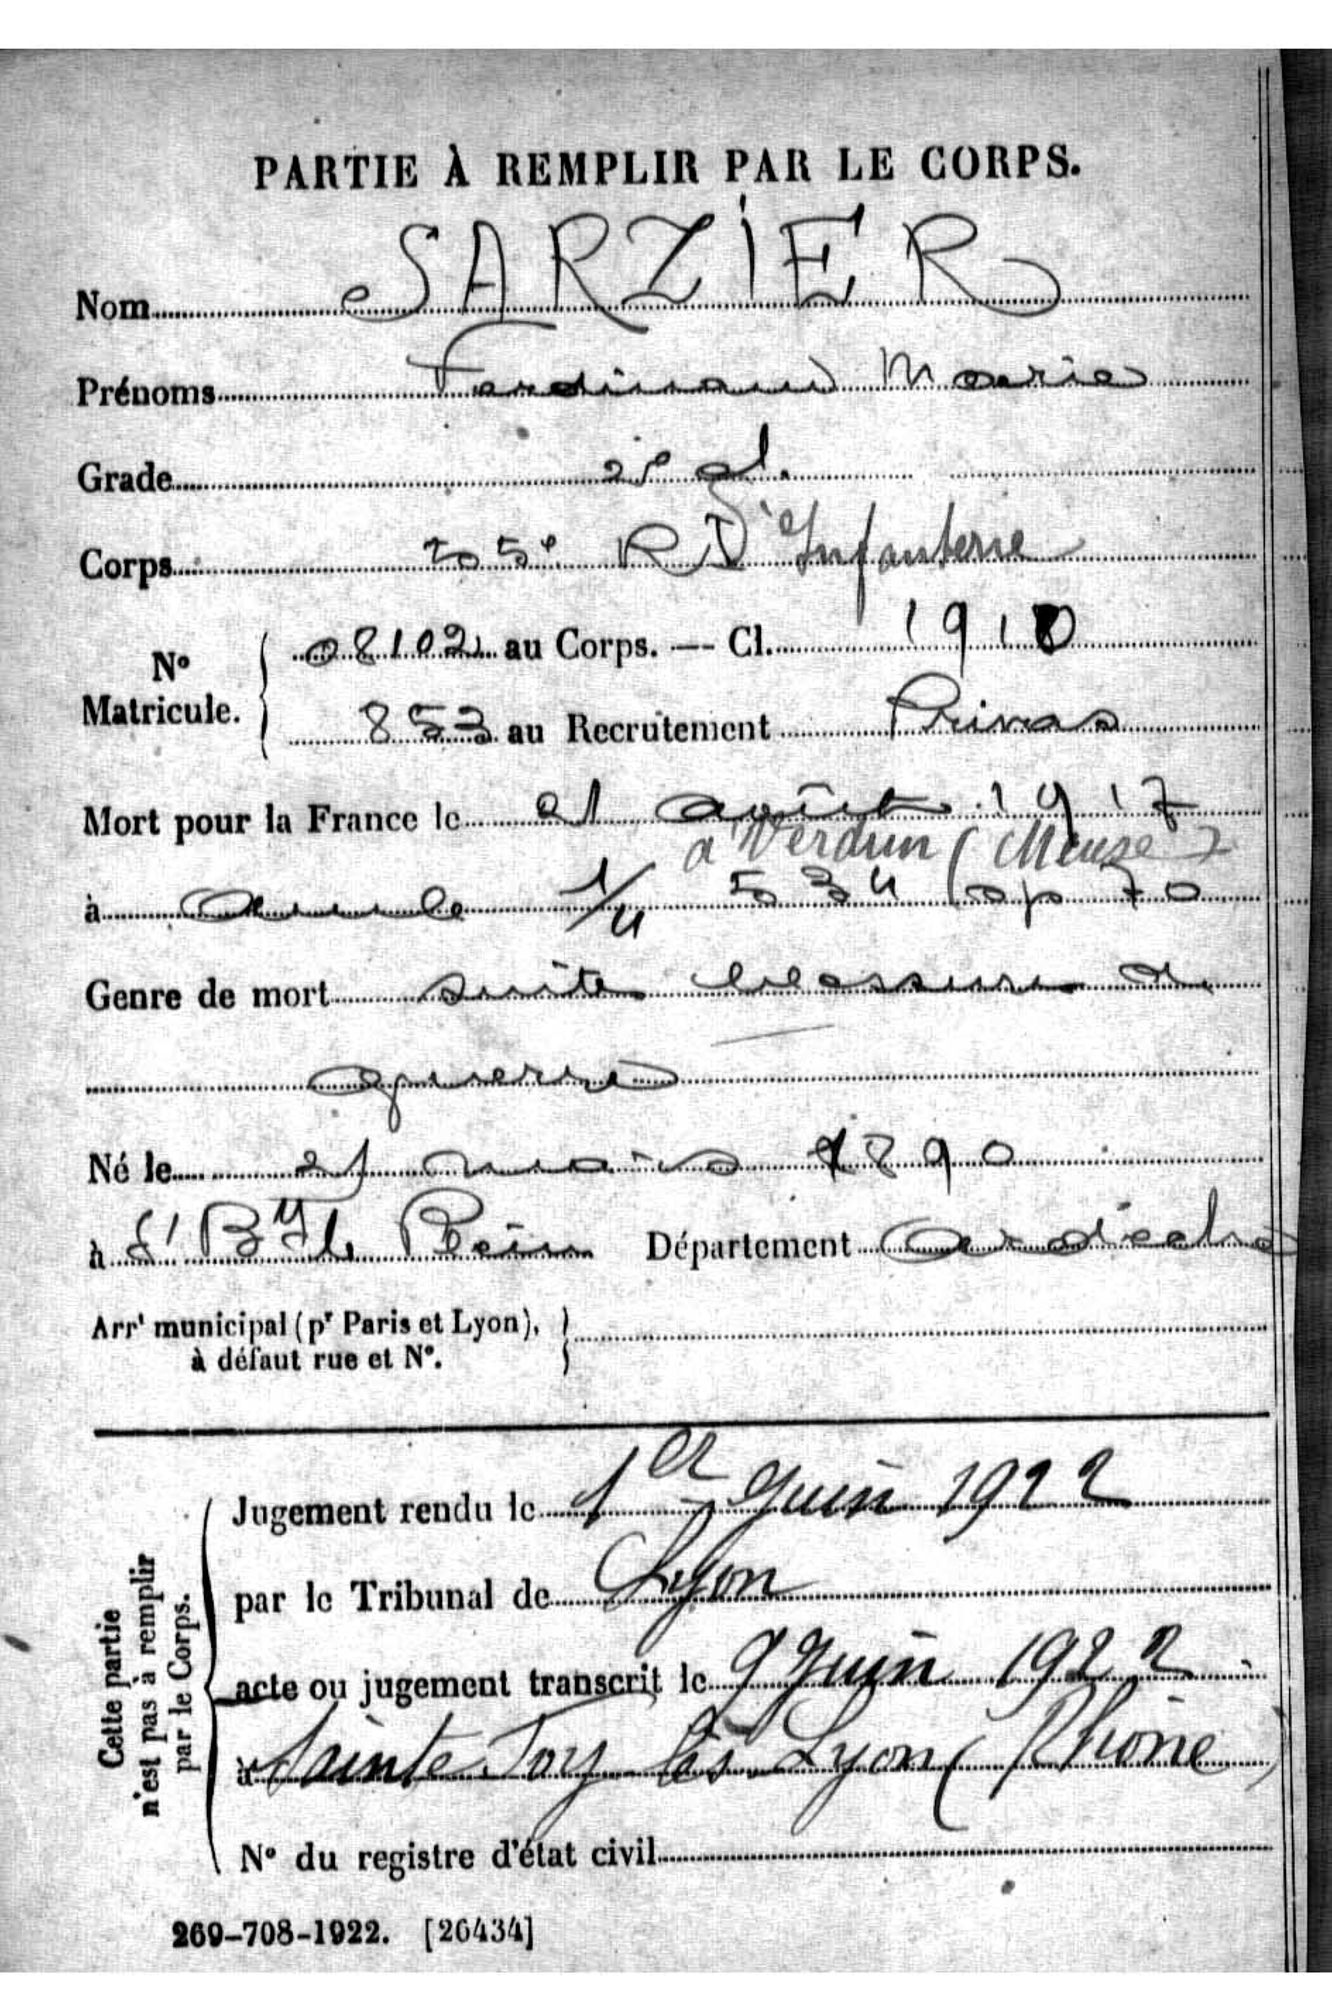 PARTIE À REMPLIR PAR LE CORPS.
Nom SARZIER
Prénoms Ferdinand Marie
Grade 2e cl.
Corps 55e R I d'Infanterie
No Matricule. 08102 au Corps. — Cl. 1910
853 au Recrutement Privas
Mort pour la France le 21 août 1917
a Verdun (Meuse)
à 1/4 534
Genre de mort suite blessures de
guerre
Né le 21 mars 1890
à St Bmy le Département Ardèche
Arrt municipal (pr Paris et Lyon), à défaut rue et No.
Cette partie n'est pas à remplir par le Corps.
Jugement rendu le 1er Juin 1922
par le Tribunal de Lyon
acte ou jugement transcrit le 9 Juin 1922
à Sainte Foy lès Lyon (Rhône)
No du registre d'état civil
269-708-1922. [26434]